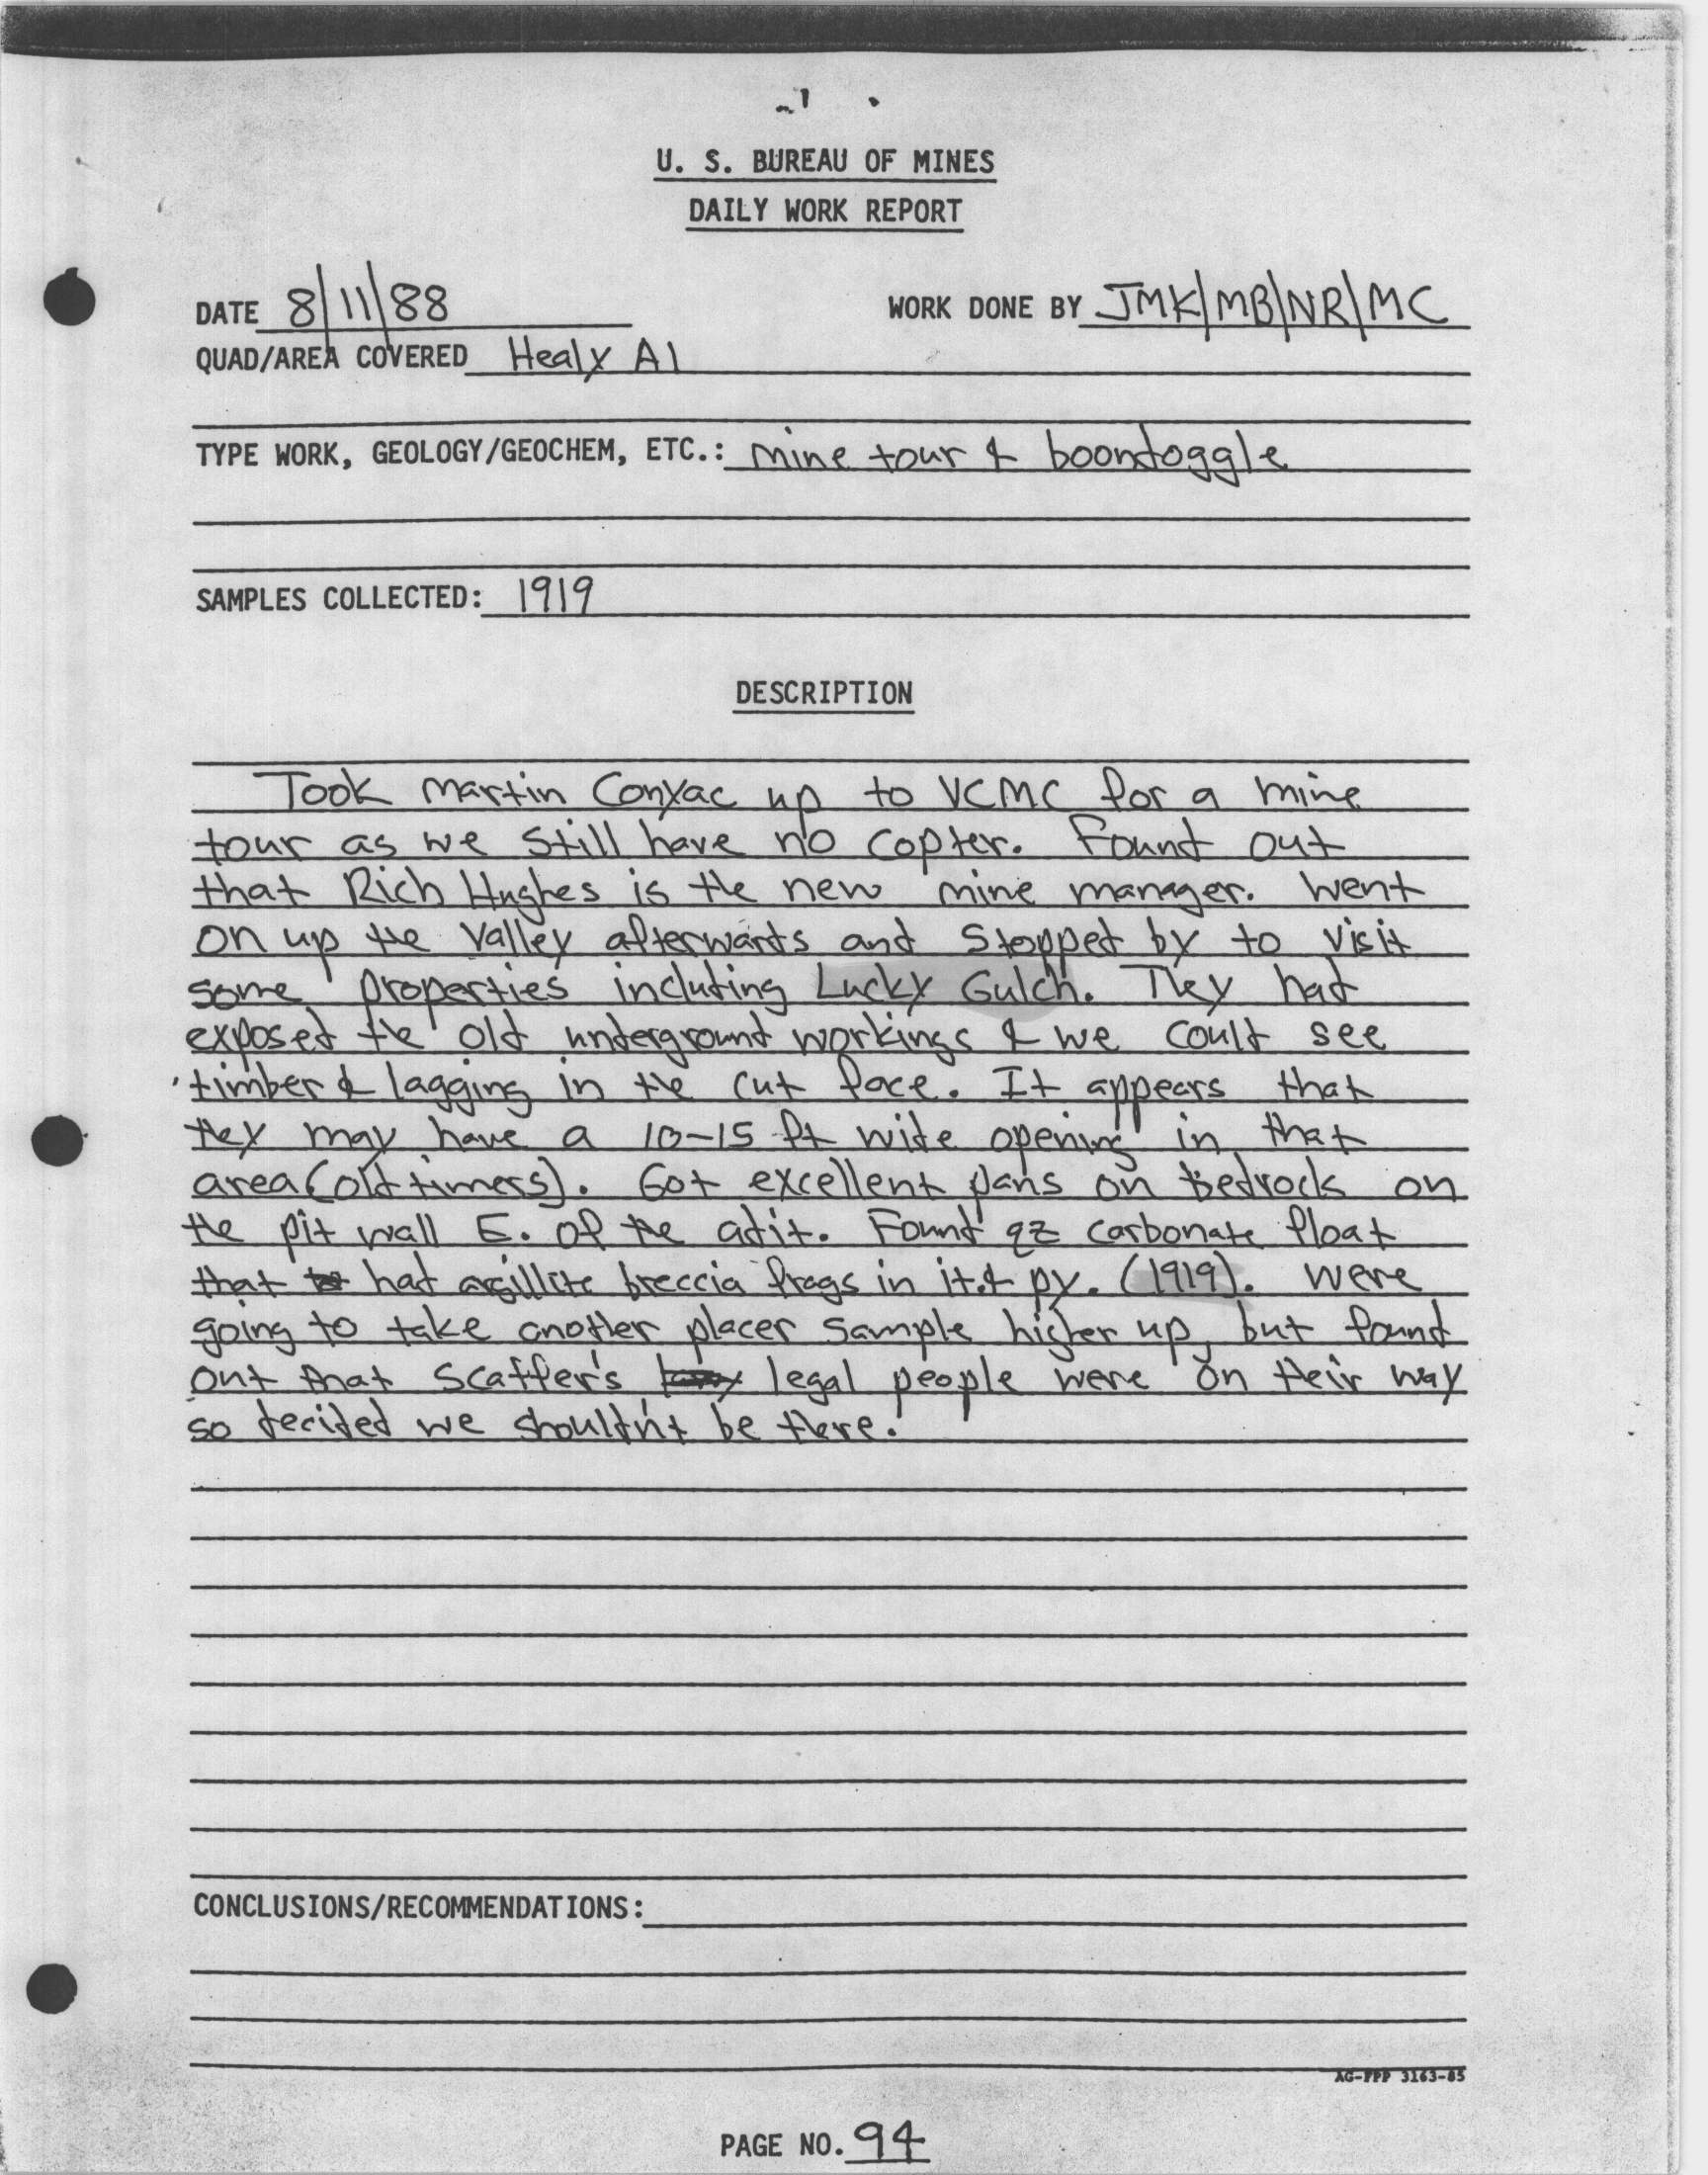 U. S. BUREAU OF MINES
DAILY WORK REPORT
DATE 8/11/88 WORK DONE BY JMK/MB/NR/MC
QUAD/AREA COVERED Healy A1
TYPE WORK, GEOLOGY/GEOCHEM, ETC.: mine tour & boondoggle
SAMPLES COLLECTED: 1919
DESCRIPTION
Took Martin Conyac up to VCMC for a mine
tour as we still have no copter. Found out
that Rich Hughes is the new mine manager. Went
on up the Valley afterwards and stopped by to visit
some properties including Lucky Gulch. They had
exposed the old underground workings & we could see
timber & lagging in the cut face. It appears that
they may have a 10-15 ft wide opening in that
area (old timers). Got excellent pans on bedrock on
the pit wall E. of the adit. Found qz carbonate float
that had argillite breccia frags in it & py. (1919). Were
going to take another placer sample higher up, but found
out that Scaffer's legal people were on their way
so decided we shouldn't be there.
CONCLUSIONS/RECOMMENDATIONS:
AG-FPP 3163-85
PAGE NO. 94